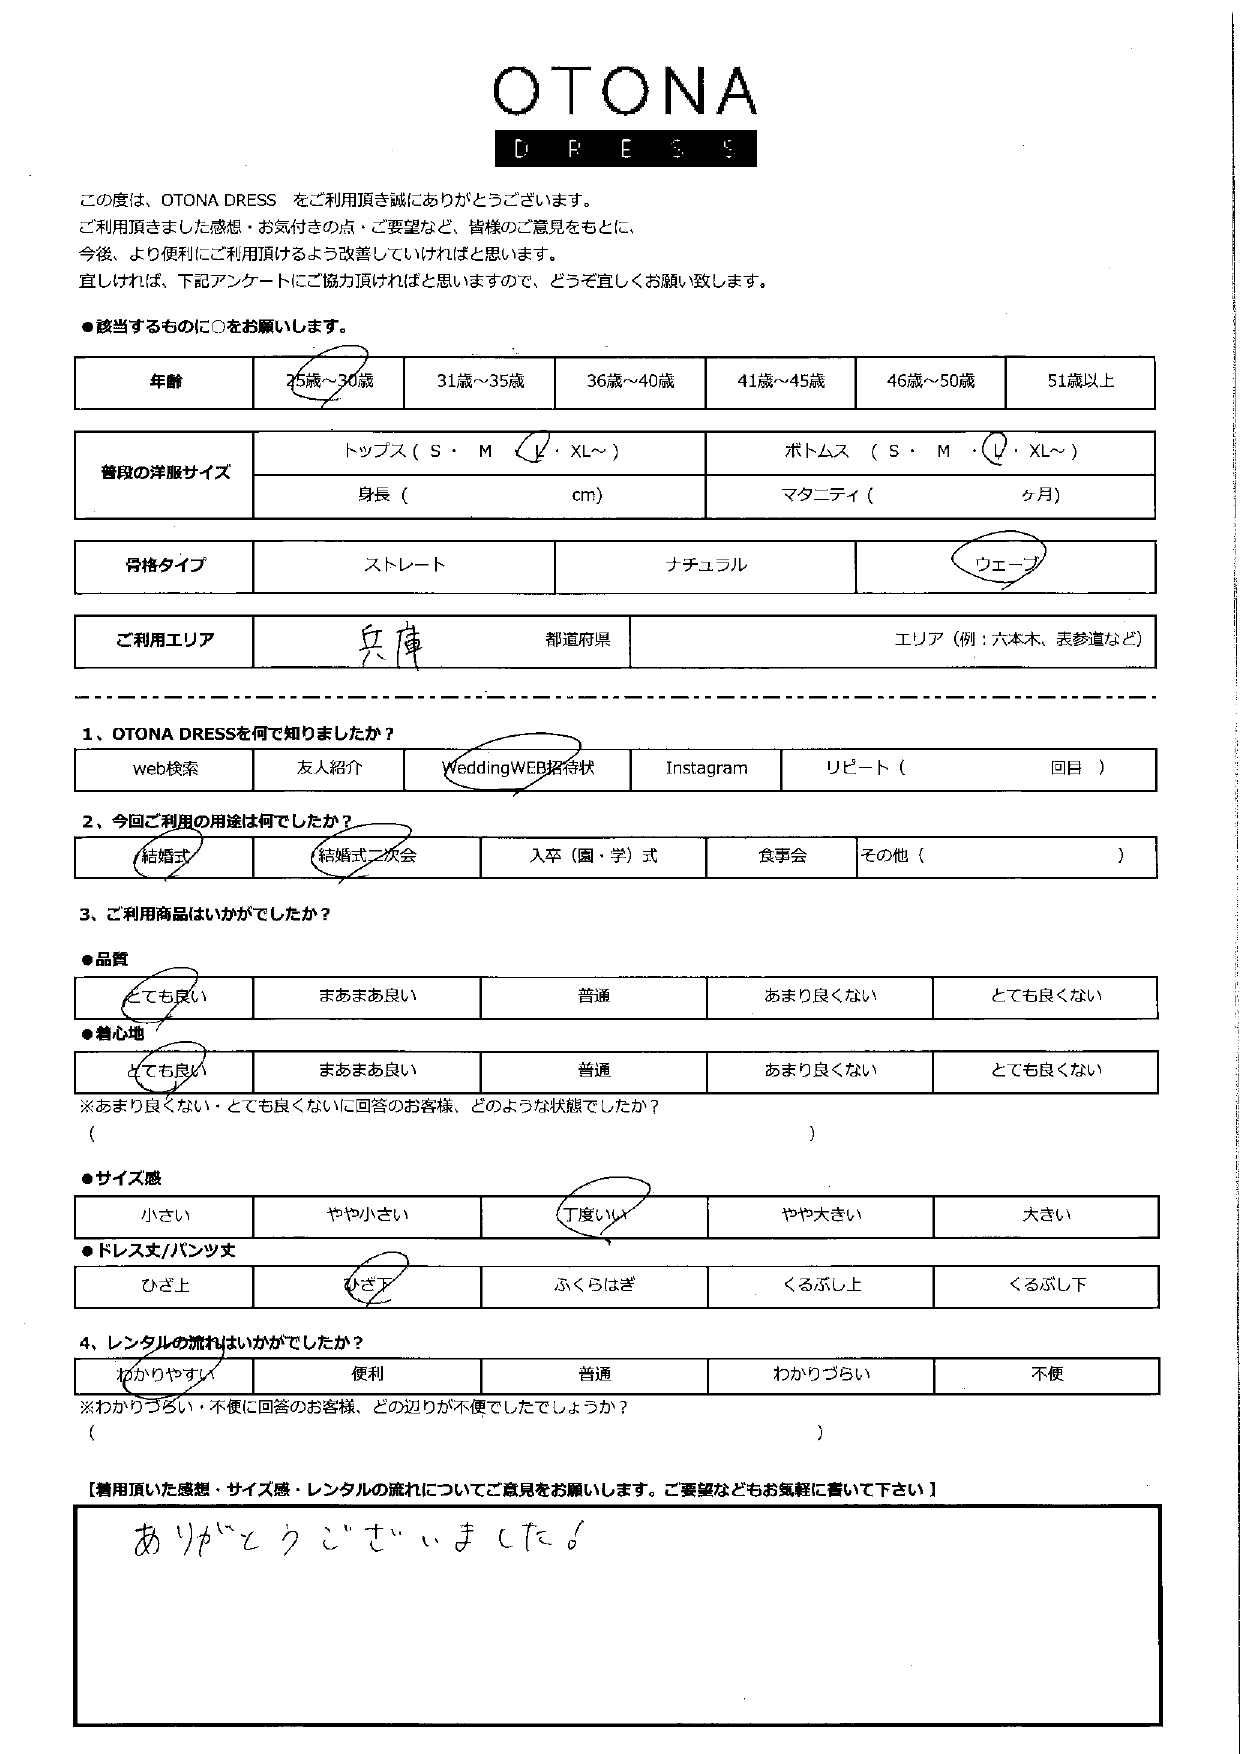 OTONA
DRESS
この度は、OTONA DRESS　をご利用頂き誠にありがとうございます。
ご利用頂きました感想・お気付きの点・ご要望など、皆様のご意見をもとに、
今後、より便利にご利用頂けるよう改善していければと思います。
宜しければ、下記アンケートにご協力頂ければと思いますので、どうぞ宜しくお願い致します。
●該当するものに○をお願いします。
年齢 25歳～30歳 31歳～35歳 36歳～40歳 41歳～45歳 46歳～50歳 51歳以上
普段の洋服サイズ トップス ( S ・ M ・ L ・ XL～ ) ボトムス ( S ・ M ・ L ・ XL～ )
身長 ( cm) マタニティ ( ヶ月)
骨格タイプ ストレート ナチュラル ウェーブ
ご利用エリア 兵庫 都道府県 エリア（例：六本木、表参道など）
1、OTONA DRESSを何で知りましたか？
web検索 友人紹介 WeddingWEB招待状 Instagram リピート（ 回目 ）
2、今回ご利用の用途は何でしたか？
結婚式 結婚式二次会 入卒（園・学）式 食事会 その他（ ）
3、ご利用商品はいかがでしたか？
●品質
とても良い まあまあ良い 普通 あまり良くない とても良くない
●着心地
とても良い まあまあ良い 普通 あまり良くない とても良くない
※あまり良くない・とても良くないに回答のお客様、どのような状態でしたか？
( )
●サイズ感
小さい やや小さい 丁度いい やや大きい 大きい
●ドレス丈/パンツ丈
ひざ上 ひざ下 ふくらはぎ くるぶし上 くるぶし下
4、レンタルの流れはいかがでしたか？
わかりやすい 便利 普通 わかりづらい 不便
※わかりづらい・不便に回答のお客様、どの辺りが不便でしたでしょうか？
( )
【着用頂いた感想・サイズ感・レンタルの流れについてご意見をお願いします。ご要望などもお気軽に書いて下さい】
ありがとうございました！